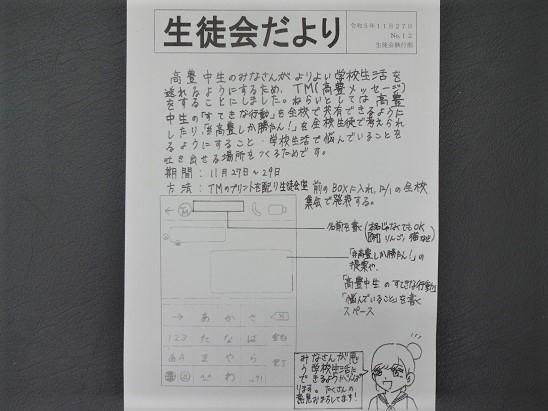 生徒会だより
令和5年11月27日
No.12
生徒会執行部
高豊中生のみなさんがよりよい学校生活を
送れるようにするため、TM(高豊メッセージ)
をすることにしました。ねらいとしては高豊
中生の「すてきな行動」を全校で共有できるように
したり、「#高豊しか勝たん!」を全校生徒で考えられ
るようにすること、学校生活で悩んでいることを
吐き出せる場所をつくるためです。
期間:11月27日~29日
方法:TMのプリントを配り生徒会室前のBOXに入れ、12/1の全校
集会で発表する。
TM
名前を書く(本名じゃなくてもOK
りんご、猫
「#高豊しか勝たん!」の
提案や、
「高豊中生のすてきな行動」
「悩んでいること」を書く
スペース
→ あ か さ
123 た な は 空白
あA ま や ら
^^ わ 、。?!
みなさんが思
う学校生活に
できるようがんば
ります。たくさんの
意見お待ちしてます!